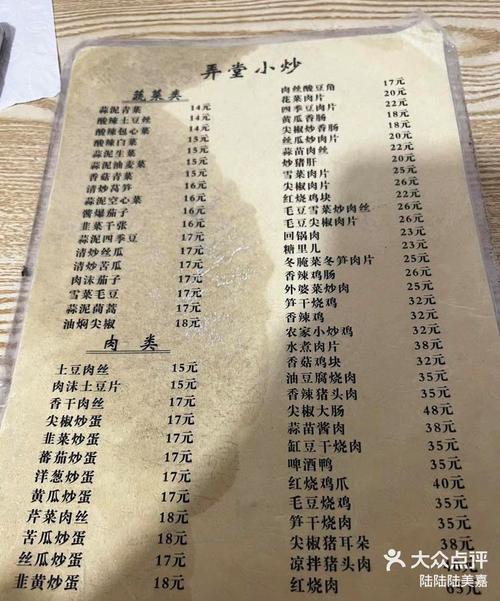 弄堂小炒
蔬菜类
蒜泥青菜 14元
酸辣土豆丝 14元
酸辣包心菜 14元
酸辣白菜 15元
蒜泥生菜 15元
蒜泥油麦菜 15元
香菇青菜 15元
清炒莴笋 16元
蒜泥空心菜 16元
酱爆茄子 16元
韭菜干张 16元
蒜泥四季豆 17元
清炒丝瓜 17元
清炒苦瓜 17元
肉沫茄子 17元
雪菜毛豆 17元
蒜泥茼蒿 17元
油焖尖椒 18元
肉类
土豆肉丝 15元
肉沫土豆片 15元
香干肉丝 17元
尖椒炒蛋 17元
韭菜炒蛋 17元
蕃茄炒蛋 17元
洋葱炒蛋 17元
黄瓜炒蛋 17元
芹菜肉丝 18元
苦瓜炒蛋 18元
丝瓜炒蛋 17元
韭黄炒蛋 18元
肉丝酸豆角 17元
花菜肉片 20元
四季豆肉片 22元
黄瓜香肠 18元
尖椒炒香肠 18元
丝瓜炒肉片 20元
蒜苗肉丝 22元
炒猪肝 20元
雪菜肉片 25元
尖椒肉片 26元
红烧鸡块 22元
毛豆雪菜炒肉丝 26元
毛豆尖椒肉片 26元
回锅肉 26元
糖里儿 23元
冬腌菜冬笋肉片 25元
香辣鸡肠 26元
外婆菜炒肉 25元
笋干烧鸡 32元
香辣鸡 32元
农家小炒鸡 32元
水煮肉片 38元
香菇鸡块 32元
油豆腐烧肉 35元
香辣猪头肉 35元
尖椒大肠 48元
蒜苗酱肉 38元
缸豆干烧肉 35元
啤酒鸭 35元
红烧鸡爪 40元
毛豆烧鸡 35元
笋干烧肉 35元
尖椒猪耳朵 38元
凉拌猪头肉
红烧肉 65元
大众点评
陆陆陆美嘉